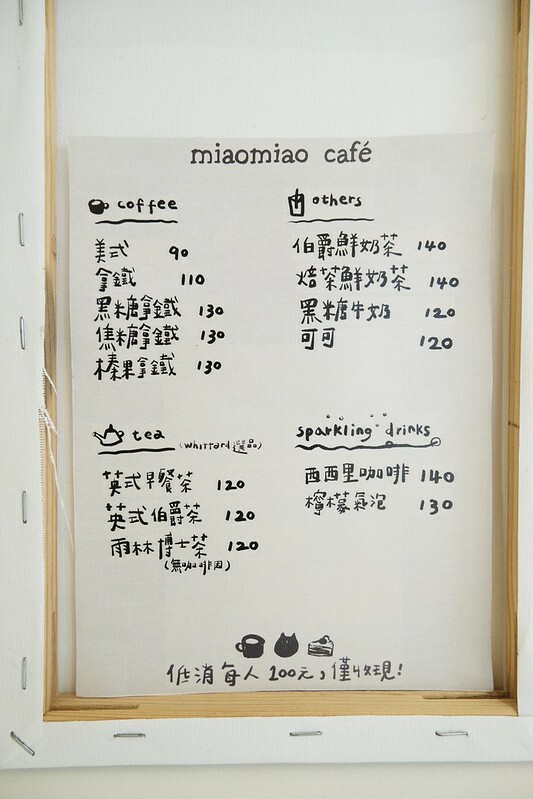 miaomiao café
coffee
美式 90
拿鐵 110
黑糖拿鐵 130
焦糖拿鐵 130
榛果拿鐵 130
others
伯爵鮮奶茶 140
焙茶鮮奶茶 140
黑糖牛奶 120
可可 120
tea (whittard 選品)
英式早餐茶 120
英式伯爵茶 120
雨林博士茶 120
(無咖啡因)
sparkling drinks
西西里咖啡 140
檸檬氣泡 130
低消每人100元，僅收現!